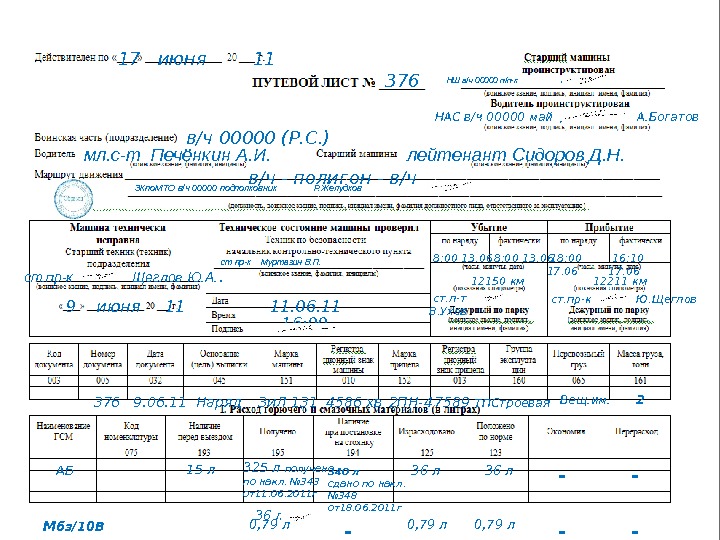 Действителен по « 17 » июня 20 11 г.
Старший машины
проинструктирован
ПУТЕВОЙ ЛИСТ № 376
НШ в/ч 00000 п/п-к
(воинское звание, подпись, инициал имени, фамилия)
Водитель проинструктирован
НАС в/ч 00000 май А.Богатов
(воинское звание, подпись, инициал имени, фамилия)
Воинская часть (подразделение) в/ч 00000 (Р.С.)
Водитель мл.с-т Печёнкин А.И. Старший машины лейтенант Сидоров Д.Н.
(воинское звание, инициал имени, фамилия) (воинское звание, инициал имени, фамилия)
Маршрут движения в/ч – полигон – в/ч
ЗКпоМТО в/ч 00000 подполковник Р.Желудков
(должность, воинское звание, подпись, инициал имени, фамилия должностного лица, ответственного за эксплуатацию)
Машина технически исправна Техническое состояние машины проверил Убытие Прибытие
Старший техник (техник) подразделения
Техник по безопасности
начальник контрольно-технического пункта
по наряду фактически по наряду фактически
ст.пр-к Муртазин В.П.
8:00 13.06 8:00 13.06 18:00 17.06 16:10 17.06
(воинское звание, подпись, инициал имени, фамилия)
(часы, минуты, дата) (часы, минуты, дата)
ст.пр-к Щеглов Ю.А.
12150 км 12211 км
(воинское звание, подпись, инициал имени, фамилия)
(показания спидометра) (показания спидометра)
« 9 » июня 20 11
Дата 11.06.11
ст.л-т ст.пр-к Ю.Щеглов
Время 16:00
Дежурный по парку Дежурный по парку
Подпись
(воинское звание, подпись, инициал имени, фамилия) (воинское звание, подпись, инициал имени, фамилия)
Код документа Номер документа Дата документа Основание (цель) выписки Марка машины Регистрационный знак машины Марка прицепа Регистрационный знак прицепа Группа эксплуатации Перевозимый груз Масса груза, тонн
003 005 032 045 151 010 065 013 160 065 161
376 9.06.11 Наряд ЗиЛ 131 4586 хв 2ПН-4 7589 тг Строевая Вещ.им. 2
1. Расход горючего и смазочных материалов (в литрах)
Наименование ГСМ Код номенклатуры Наличие перед выездом Получено Наличие при постановке на стоянку Израсходовано Положено по норме Экономия Перерасход
075 193 195 194 125 123
АБ 15 л 325 л получено по накл. №343 от11.06.2011г 340 л сдано по накл. №348 от18.06.2011г 36 л 36 л - -
36 г
М6з/10В 0,79 л - 0,79 л 0,79 л - -